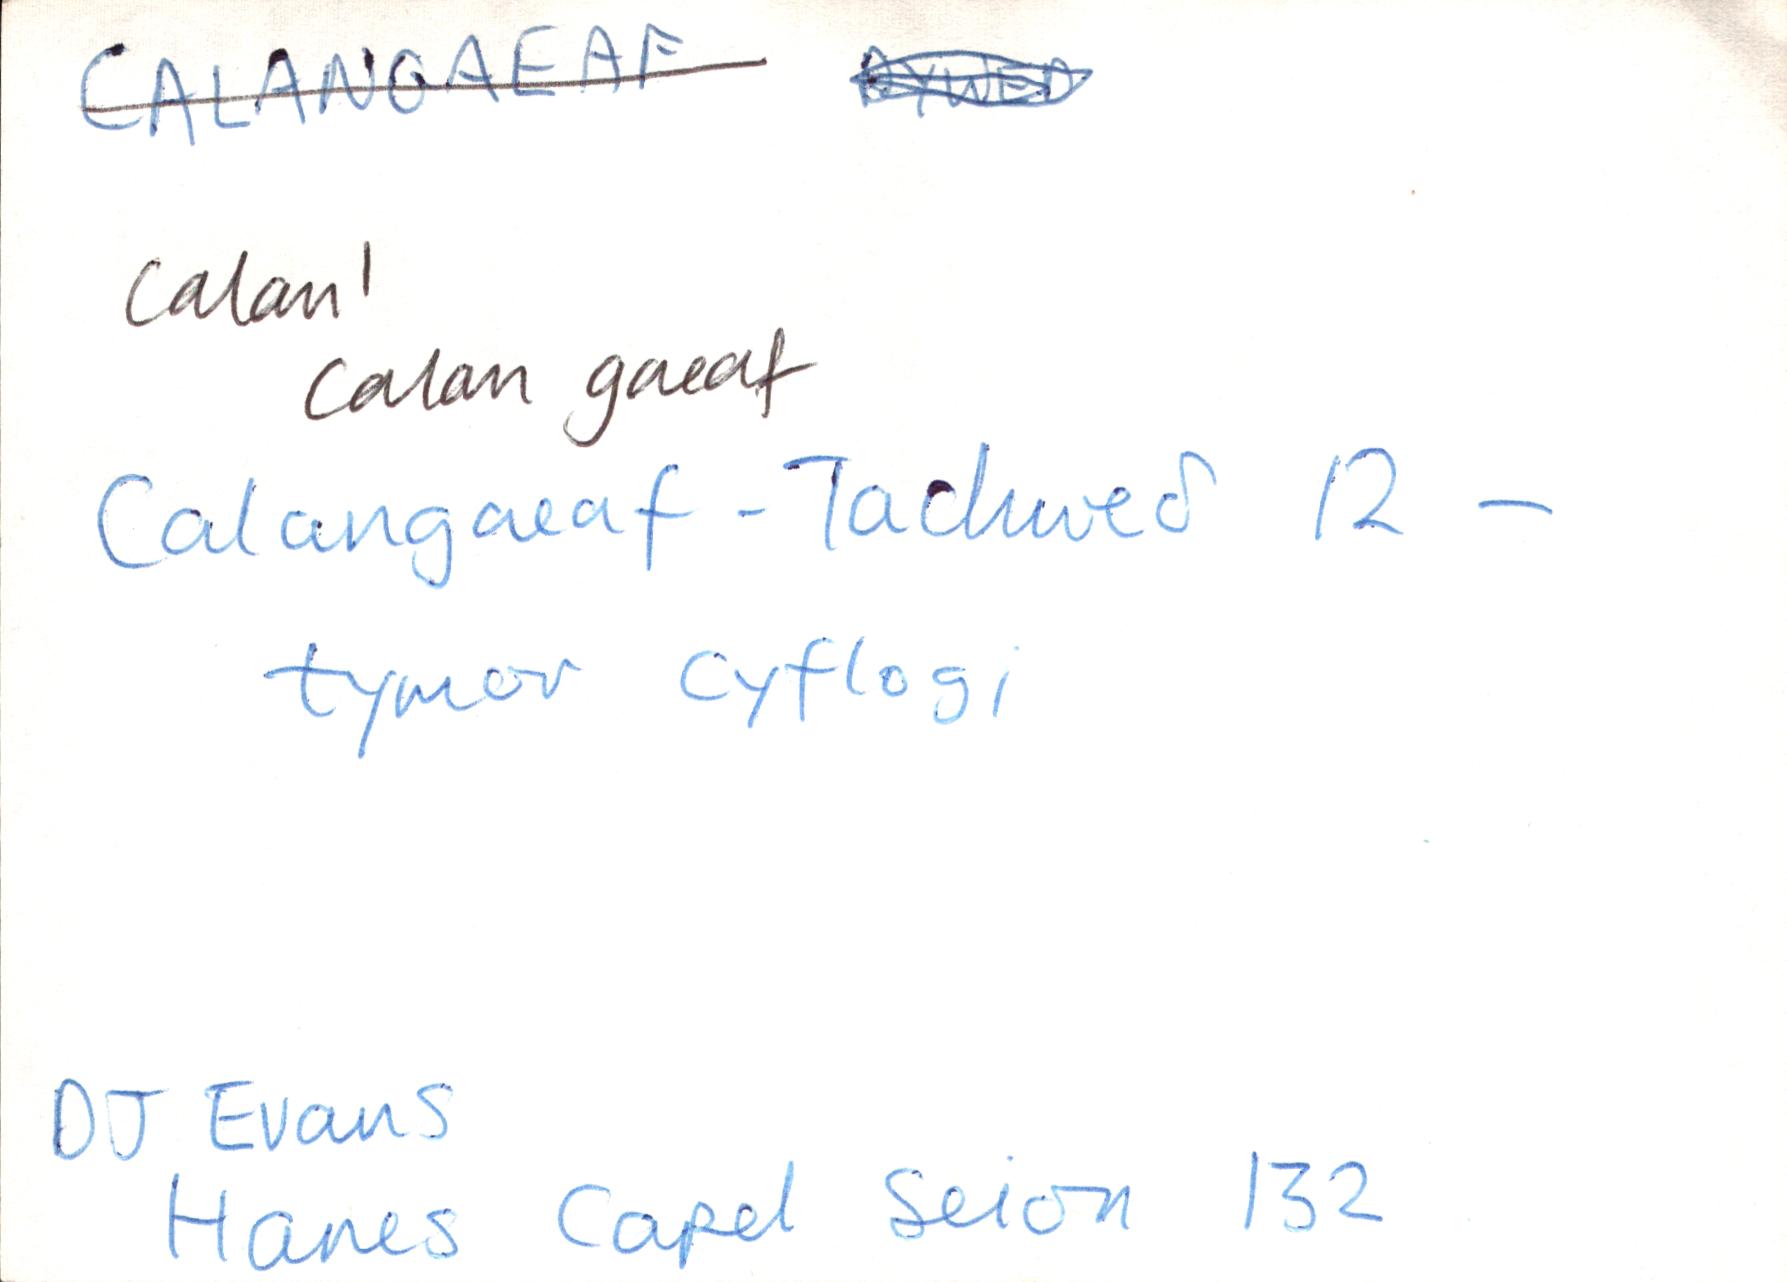 CALANGAEAF
calan¹
calan gaeaf
Calangaeaf - Tachwedd 12 -
tymor cyflogi
DJ Evans
Hanes Capel Seion 132